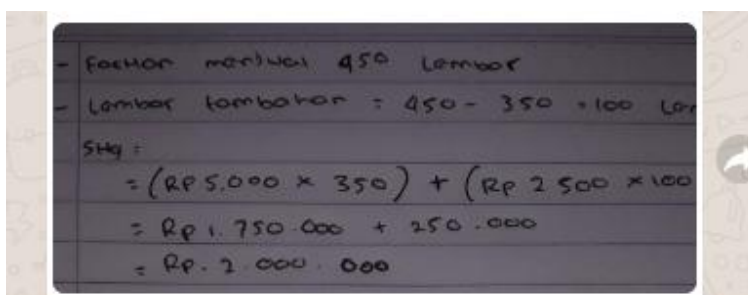 - Fathan menjual 450 Lembar
- Lembar tambahan = 450 - 350 = 100 Lem
SHq =
= (RP 5.000 × 350) + (RP 2 500 × 100
= Rp 1. 750.000 + 250.000
= Rp. 2.000.000